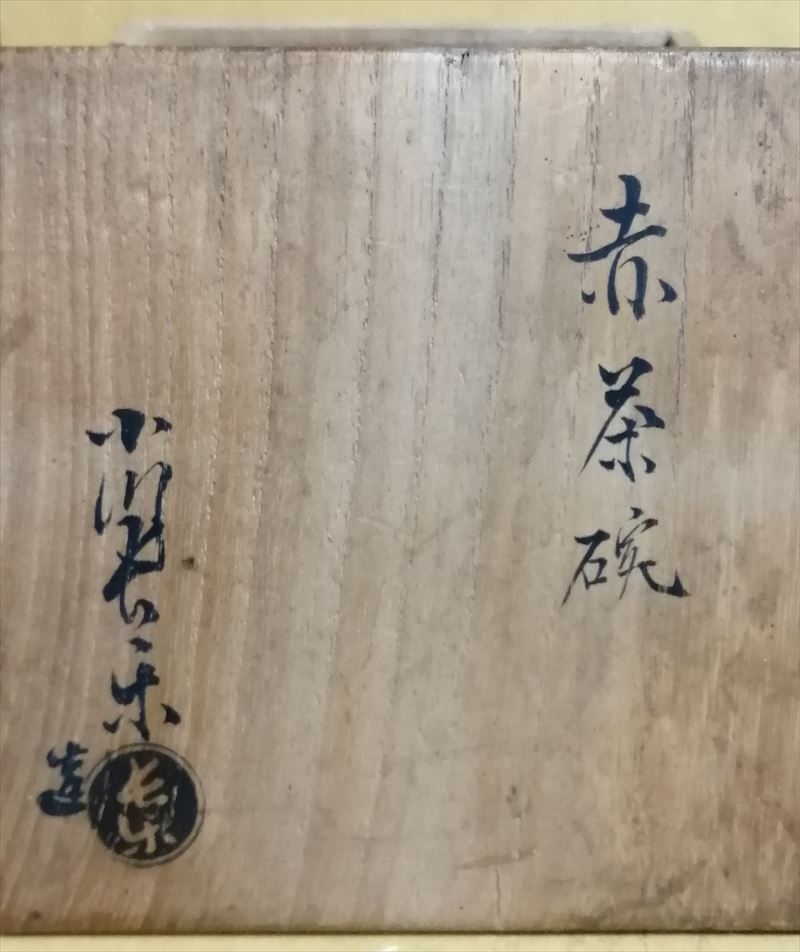 赤茶碗
小川長楽
造
長楽